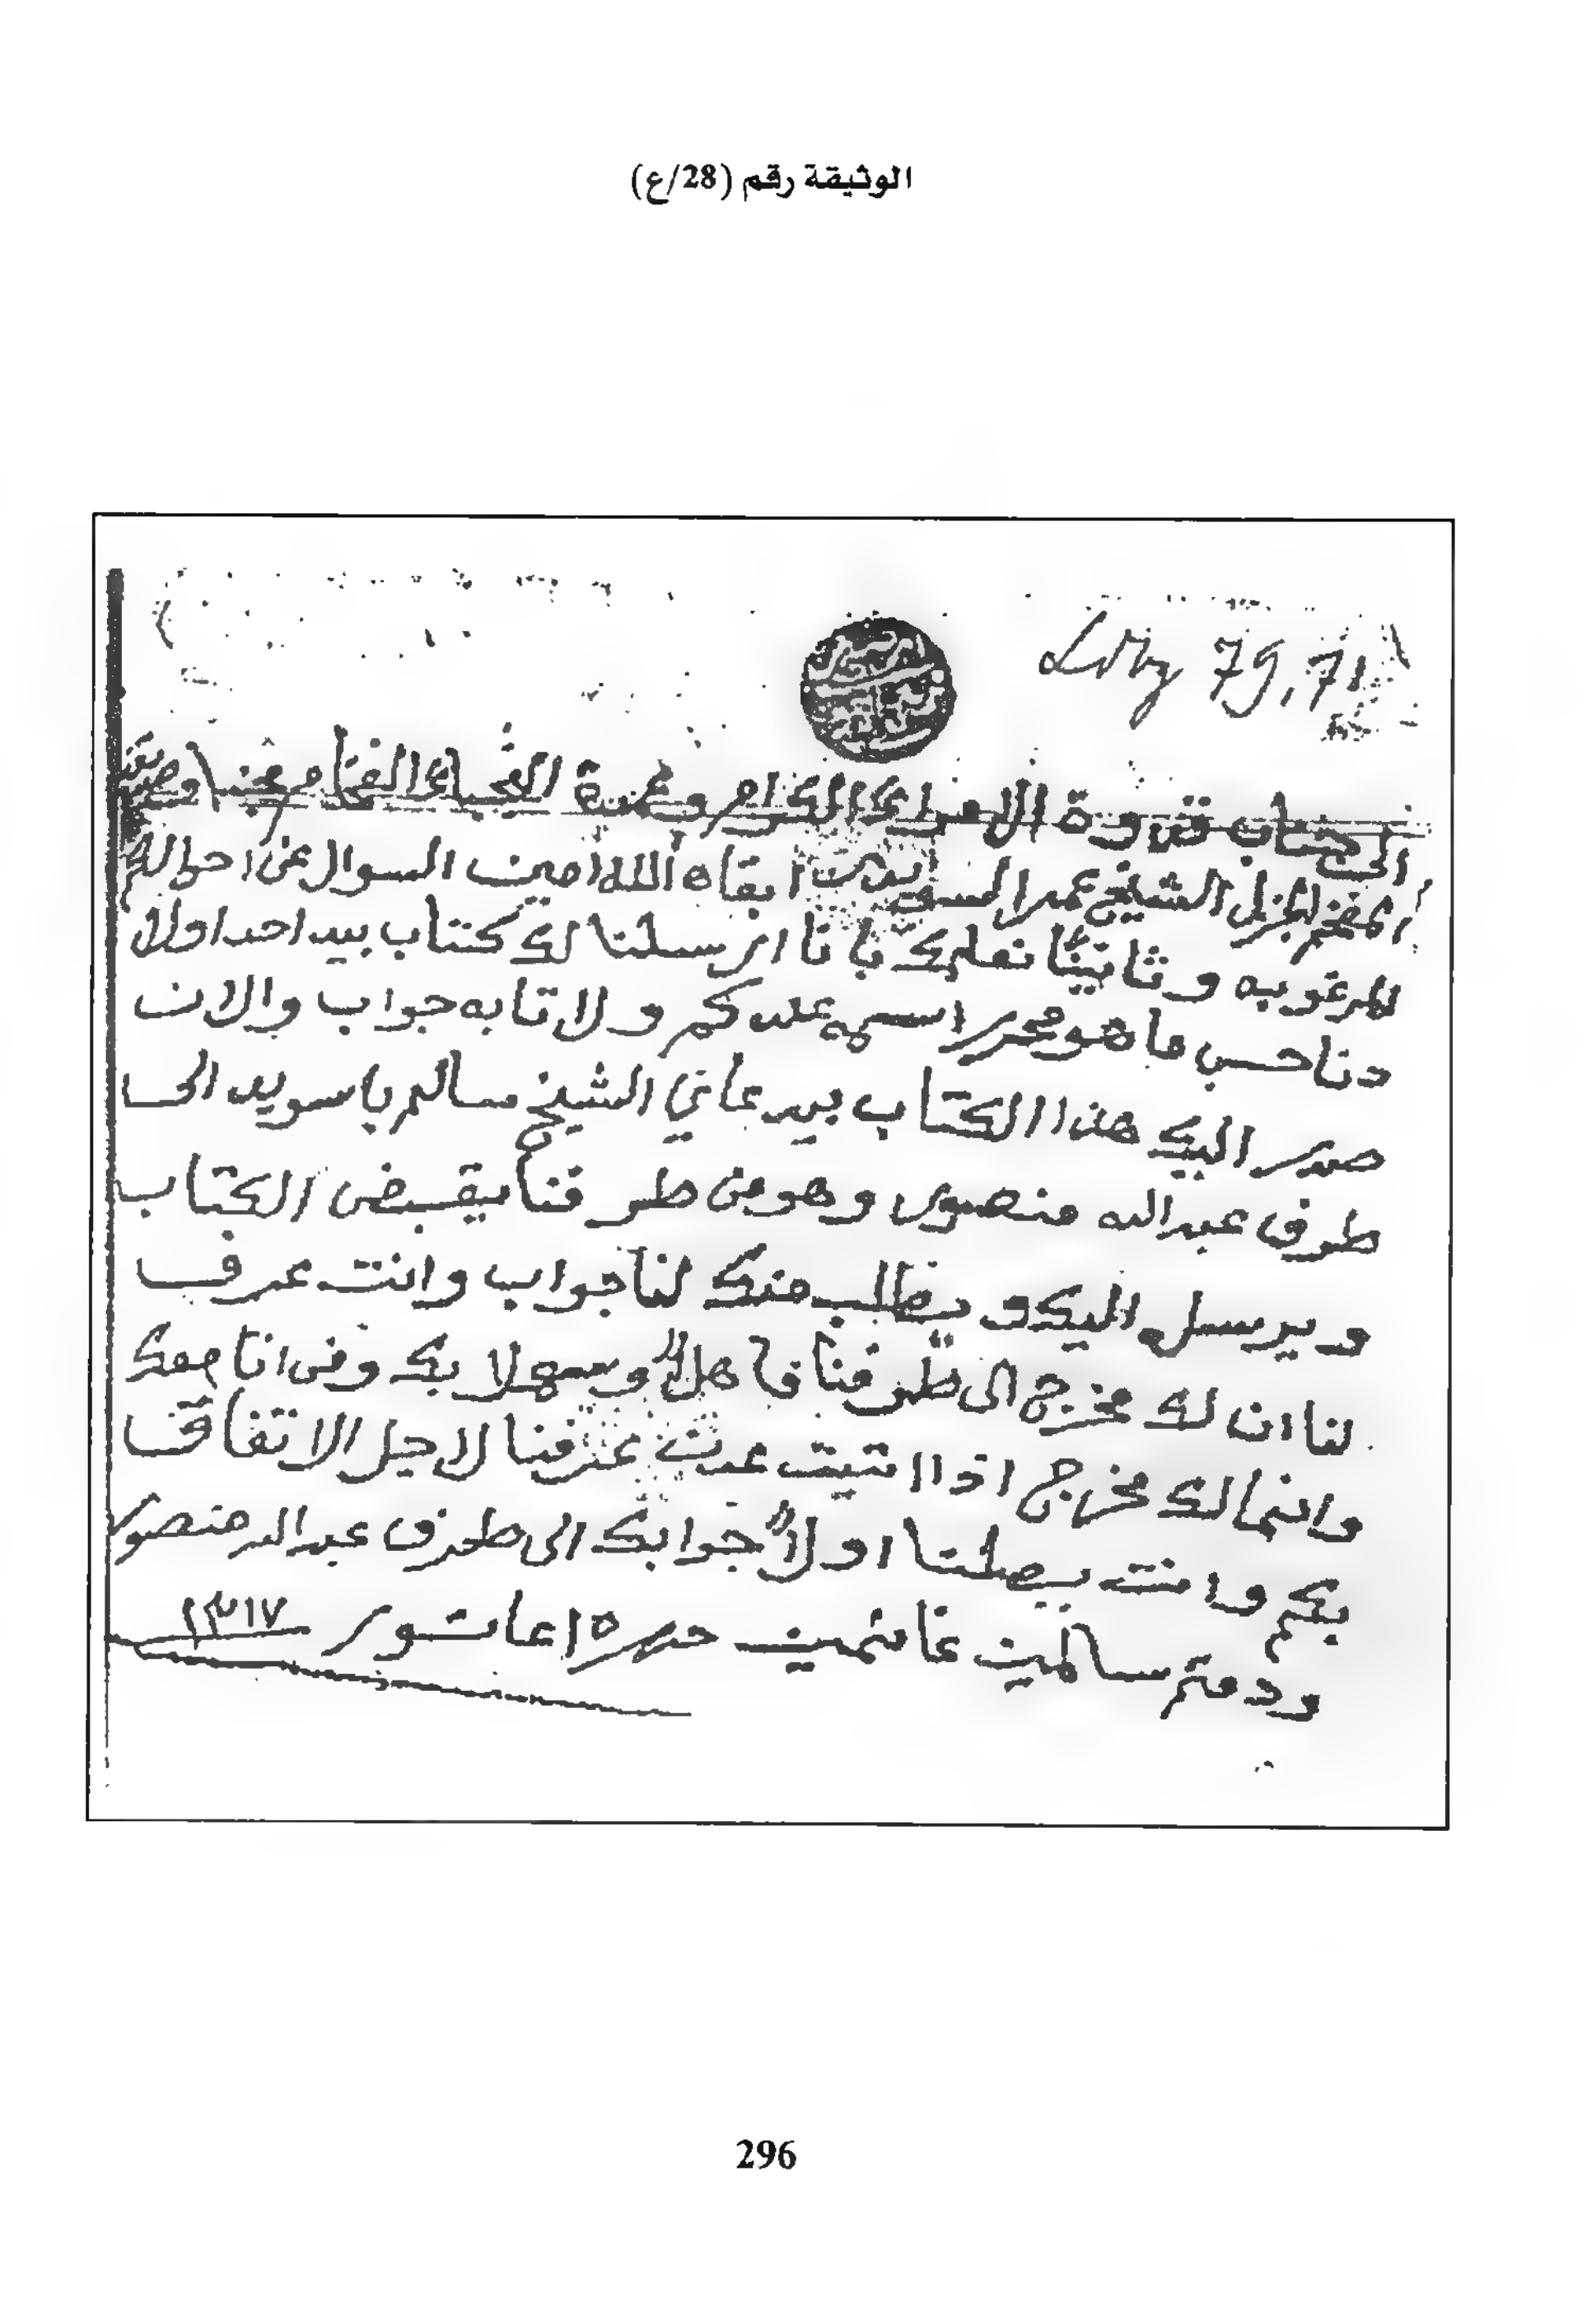 الوثيقة رقم (28/ع)
79,71
الى جناب قدوة الامراء الكرام وعمدة النجباء الفخام محبنا وصديقنا
المفخم الجزل الشيخ عمر السويدي ابقاه الله امين السوال عن احوالكم
المرغوبه وثانيًا نعلمك بانا ارسلنا لك كتاب بيد احد اولاد
دنا حسب ما هو محرر اسمه عليكم ولا تا به جواب والان
صدر اليك هذا الكتاب بيد عاني الشيخ سالم باسويد الى
طرف عبدالله منصور وهو من طرفنا يقبض الكتاب
ويرسل اليك ويطلب منك لنا جواب وانت عرف
لنا ان لك مخرج الى طرفنا فاهلاً وسهلا بك ونحن انا معك
وانما لك مخرج اذا اتيت عدن عرفنا لاجل الاتفاق
بكم وانت يصلنا اولاً جوابك الى طرف عبدالله منصور
ودمتم سالمين غانمين حرر ١٥ عاشور ١٣١٧
296